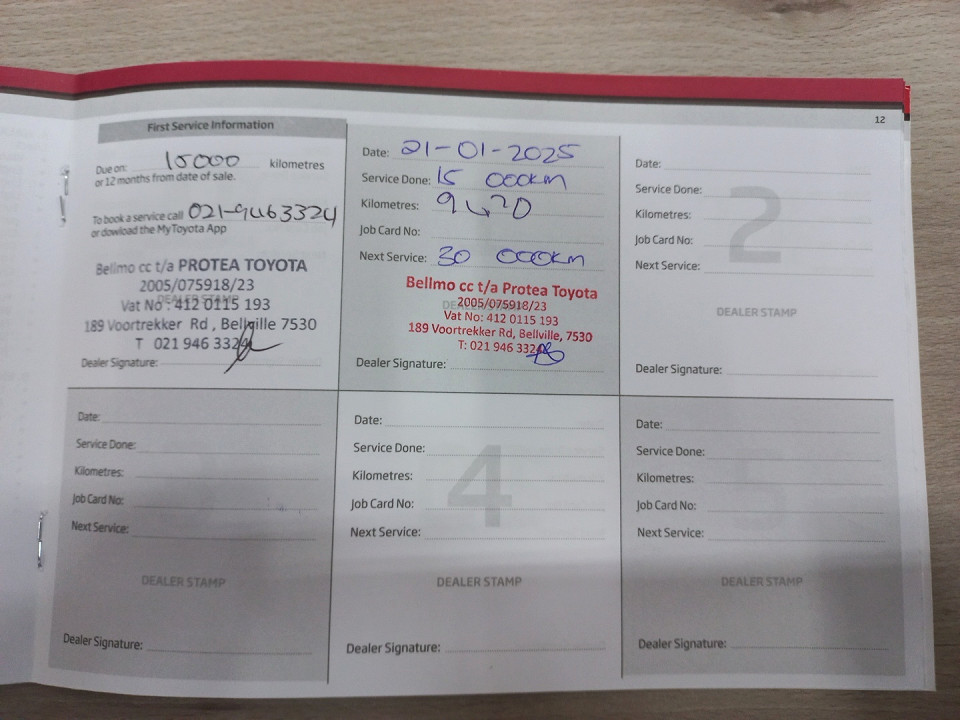 12
First Service Information
Due on: 15000 kilometres
or 12 months from date of sale.
To book a service call 021-9463324
or dowload the MyToyota App
Bellmo cc t/a PROTEA TOYOTA
2005/075918/23
DEALER STAMP
Vat No : 412 0115 193
189 Voortrekker Rd , Bellville 7530
T 021 946 3324
Dealer Signature:
Date: 21-01-2025
Service Done: 15 000km
Kilometres:
Job Card No:
Next Service: 30 000km
Bellmo cc t/a Protea Toyota
DEALER STAMP
2005/075918/23
Vat No: 412 0115 193
189 Voortrekker Rd, Bellville, 7530
T: 021 946 3324
Dealer Signature:
2
Date:
Service Done:
Kilometres:
Job Card No:
Next Service:
DEALER STAMP
Dealer Signature:
Date:
Service Done:
Kilometres:
Job Card No:
Next Service:
DEALER STAMP
Dealer Signature:
4
Date:
Service Done:
Kilometres:
Job Card No:
Next Service:
DEALER STAMP
Dealer Signature:
Date:
Service Done:
Kilometres:
Job Card No:
Next Service:
DEALER STAMP
Dealer Signature: